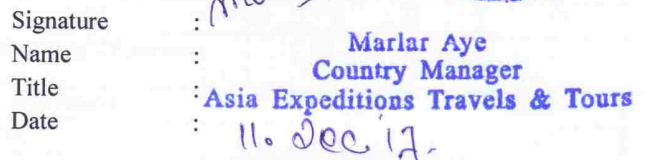 Signature :
Name : Marlar Aye
Title : Country Manager
Asia Expeditions Travels & Tours
Date : 11. Dec 17.